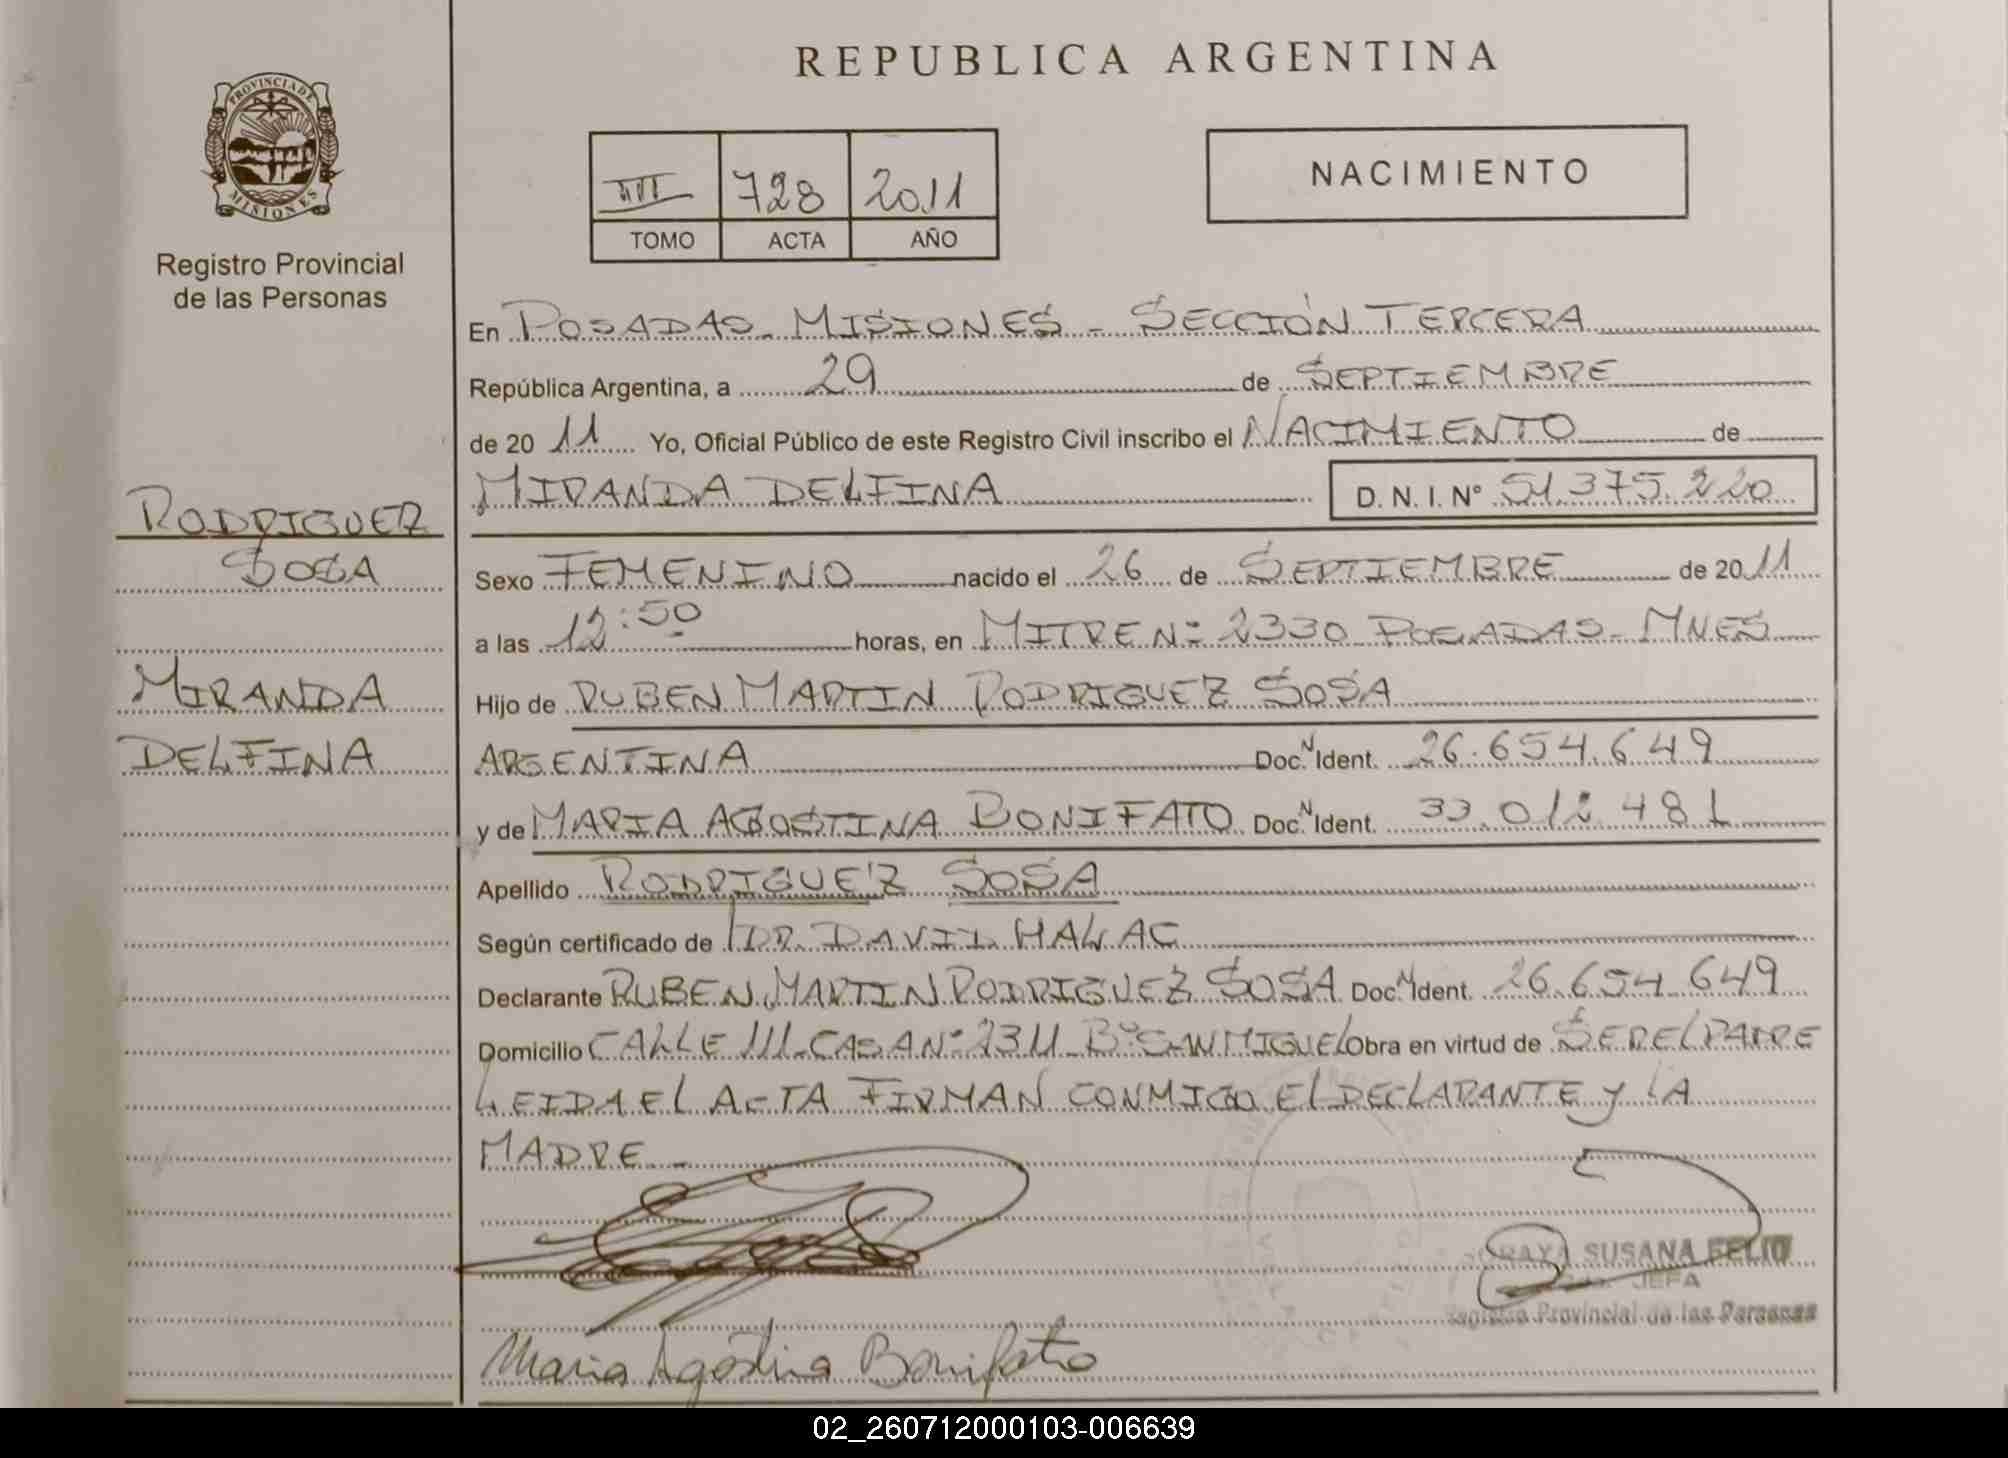 REPUBLICA ARGENTINA
PROVINCIA DE
MISIONES
Registro Provincial
de las Personas
728 2011
TOMO ACTA AÑO
NACIMIENTO
En POSADAS - MISIONES - SECCIÓN TERCERA
República Argentina, a 29 de SEPTIEMBRE
de 20 11 Yo, Oficial Público de este Registro Civil inscribo el NACIMIENTO de
MIRANDA DELFINA D. N. I. Nº 51.375.220
RODRIGUEZ
SOSA
MIRANDA
DELFINA
Sexo FEMENINO nacido el 26 de SEPTIEMBRE de 2011
a las 12:50 horas, en MITRE Nº 2330 POSADAS - MNES
Hijo de RUBEN MARTIN RODRIGUEZ SOSA
ARGENTINA Doc. N Ident. 26.654.649
y de MARIA AGOSTINA BONIFATO Doc. N Ident. 33.012.481
Apellido RODRIGUEZ SOSA
Según certificado de DR. DAVID HALAC
Declarante RUBEN MARTIN RODRIGUEZ SOSA Doc. N Ident. 26.654.649
Domicilio CALLE 111 - CASA Nº 2311 Bº SAN MIGUEL Obra en virtud de SER EL PADRE
LEIDA EL ACTA FIRMAN CONMIGO EL DECLARANTE Y LA
MADRE -
SUSANA FELIU
JEFA
Registro Provincial de las Personas
Maria Agostina Bonifato
02_260712000103-006639